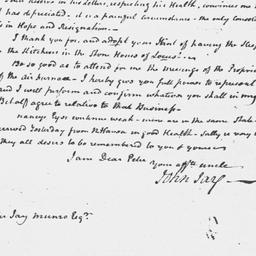 in his letters, respecting his Health, convinces me
has depreciated. it is a painful circumstance – the only
is in Hope and Resignation. –
I thank you for, and adopt your Hint of having the
the Kitchen in the Stone House of
Be so good as to attend for me the meetings of the Propri
of the air furnace – I hereby give you full power to represent
and I will perform and confirm whatever you shall in my
Behalf agree to relative to that Business.
nancys Eyes continue weak – mine are in the same State
Yesterday from NHaven in good Health – Sally is very
They all desire to be remembered to you &
I am Dear Peter
Your affte uncle
John Jay
Jay Munro Esqr.